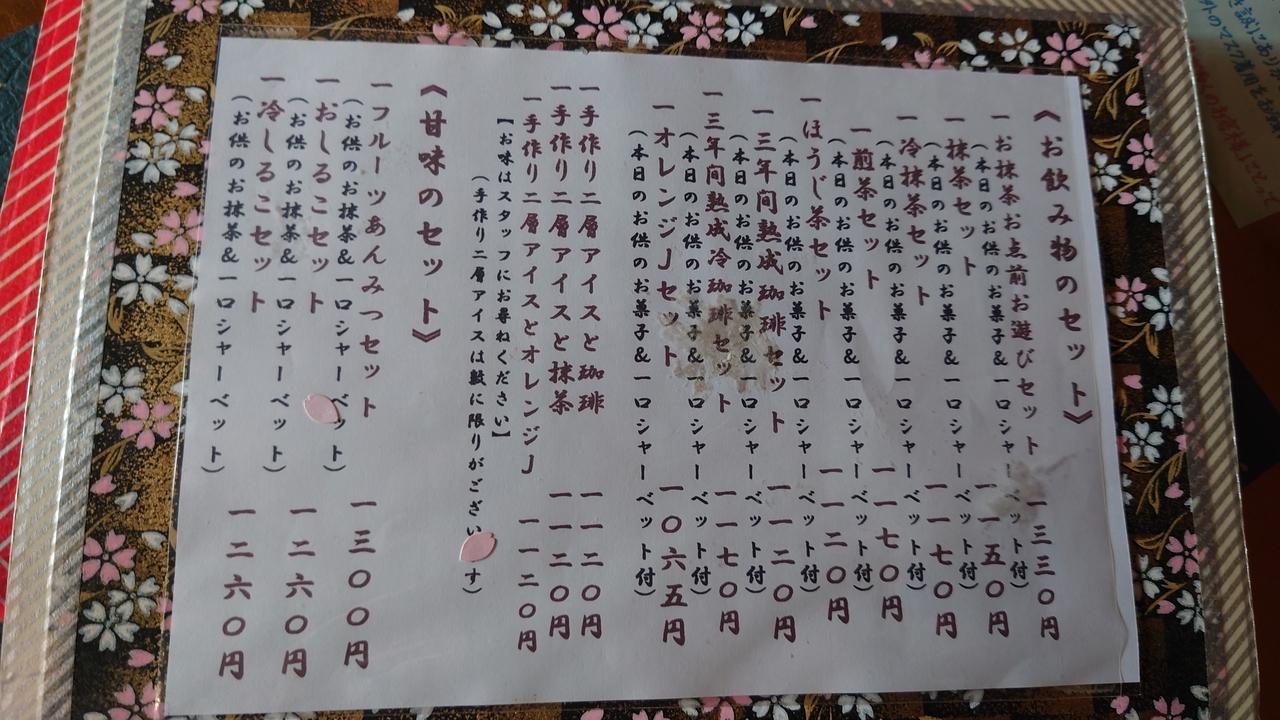 き誠にあり
外のマスク着用をお
くのお客様にとって
《お飲み物のセット》
一お抹茶お点前お遊びセット 一三三〇円
(本日のお供のお菓子&一口シャーベット付)
一抹茶セット 一一五〇円
(本日のお供のお菓子&一口シャーベット付)
一冷抹茶セット 一一七〇円
(本日のお供のお菓子&一口シャーベット付)
一煎茶セット 一一七〇円
(本日のお供のお菓子&一口シャーベット付)
一ほうじ茶セット 一一二〇円
(本日のお供のお菓子&一口シャーベット付)
一三年間熟成珈琲セット 一一二〇円
(本日のお供のお菓子&一口シャーベット付)
一三年間熟成冷珈琲セット 一一七〇円
(本日のお供のお菓子&一口シャーベット付)
一オレンジJセット 一〇六五円
(本日のお供のお菓子&一口シャーベット付)
一手作り二層アイスと珈琲 一一二〇円
一手作り二層アイスと抹茶 一一二〇円
一手作り二層アイスとオレンジJ 一一二〇円
【お味はスタッフにお尋ねください】
(手作り二層アイスは数に限りがござい す)
《甘味のセット》
一フルーツあんみつセット 一三〇〇円
(お供のお抹茶&一口シャーベット)
一おしるこセット 一二六〇円
(お供のお抹茶&一口シャーベット)
一冷しるこセット 一二六〇円
(お供のお抹茶&一口シャーベット)